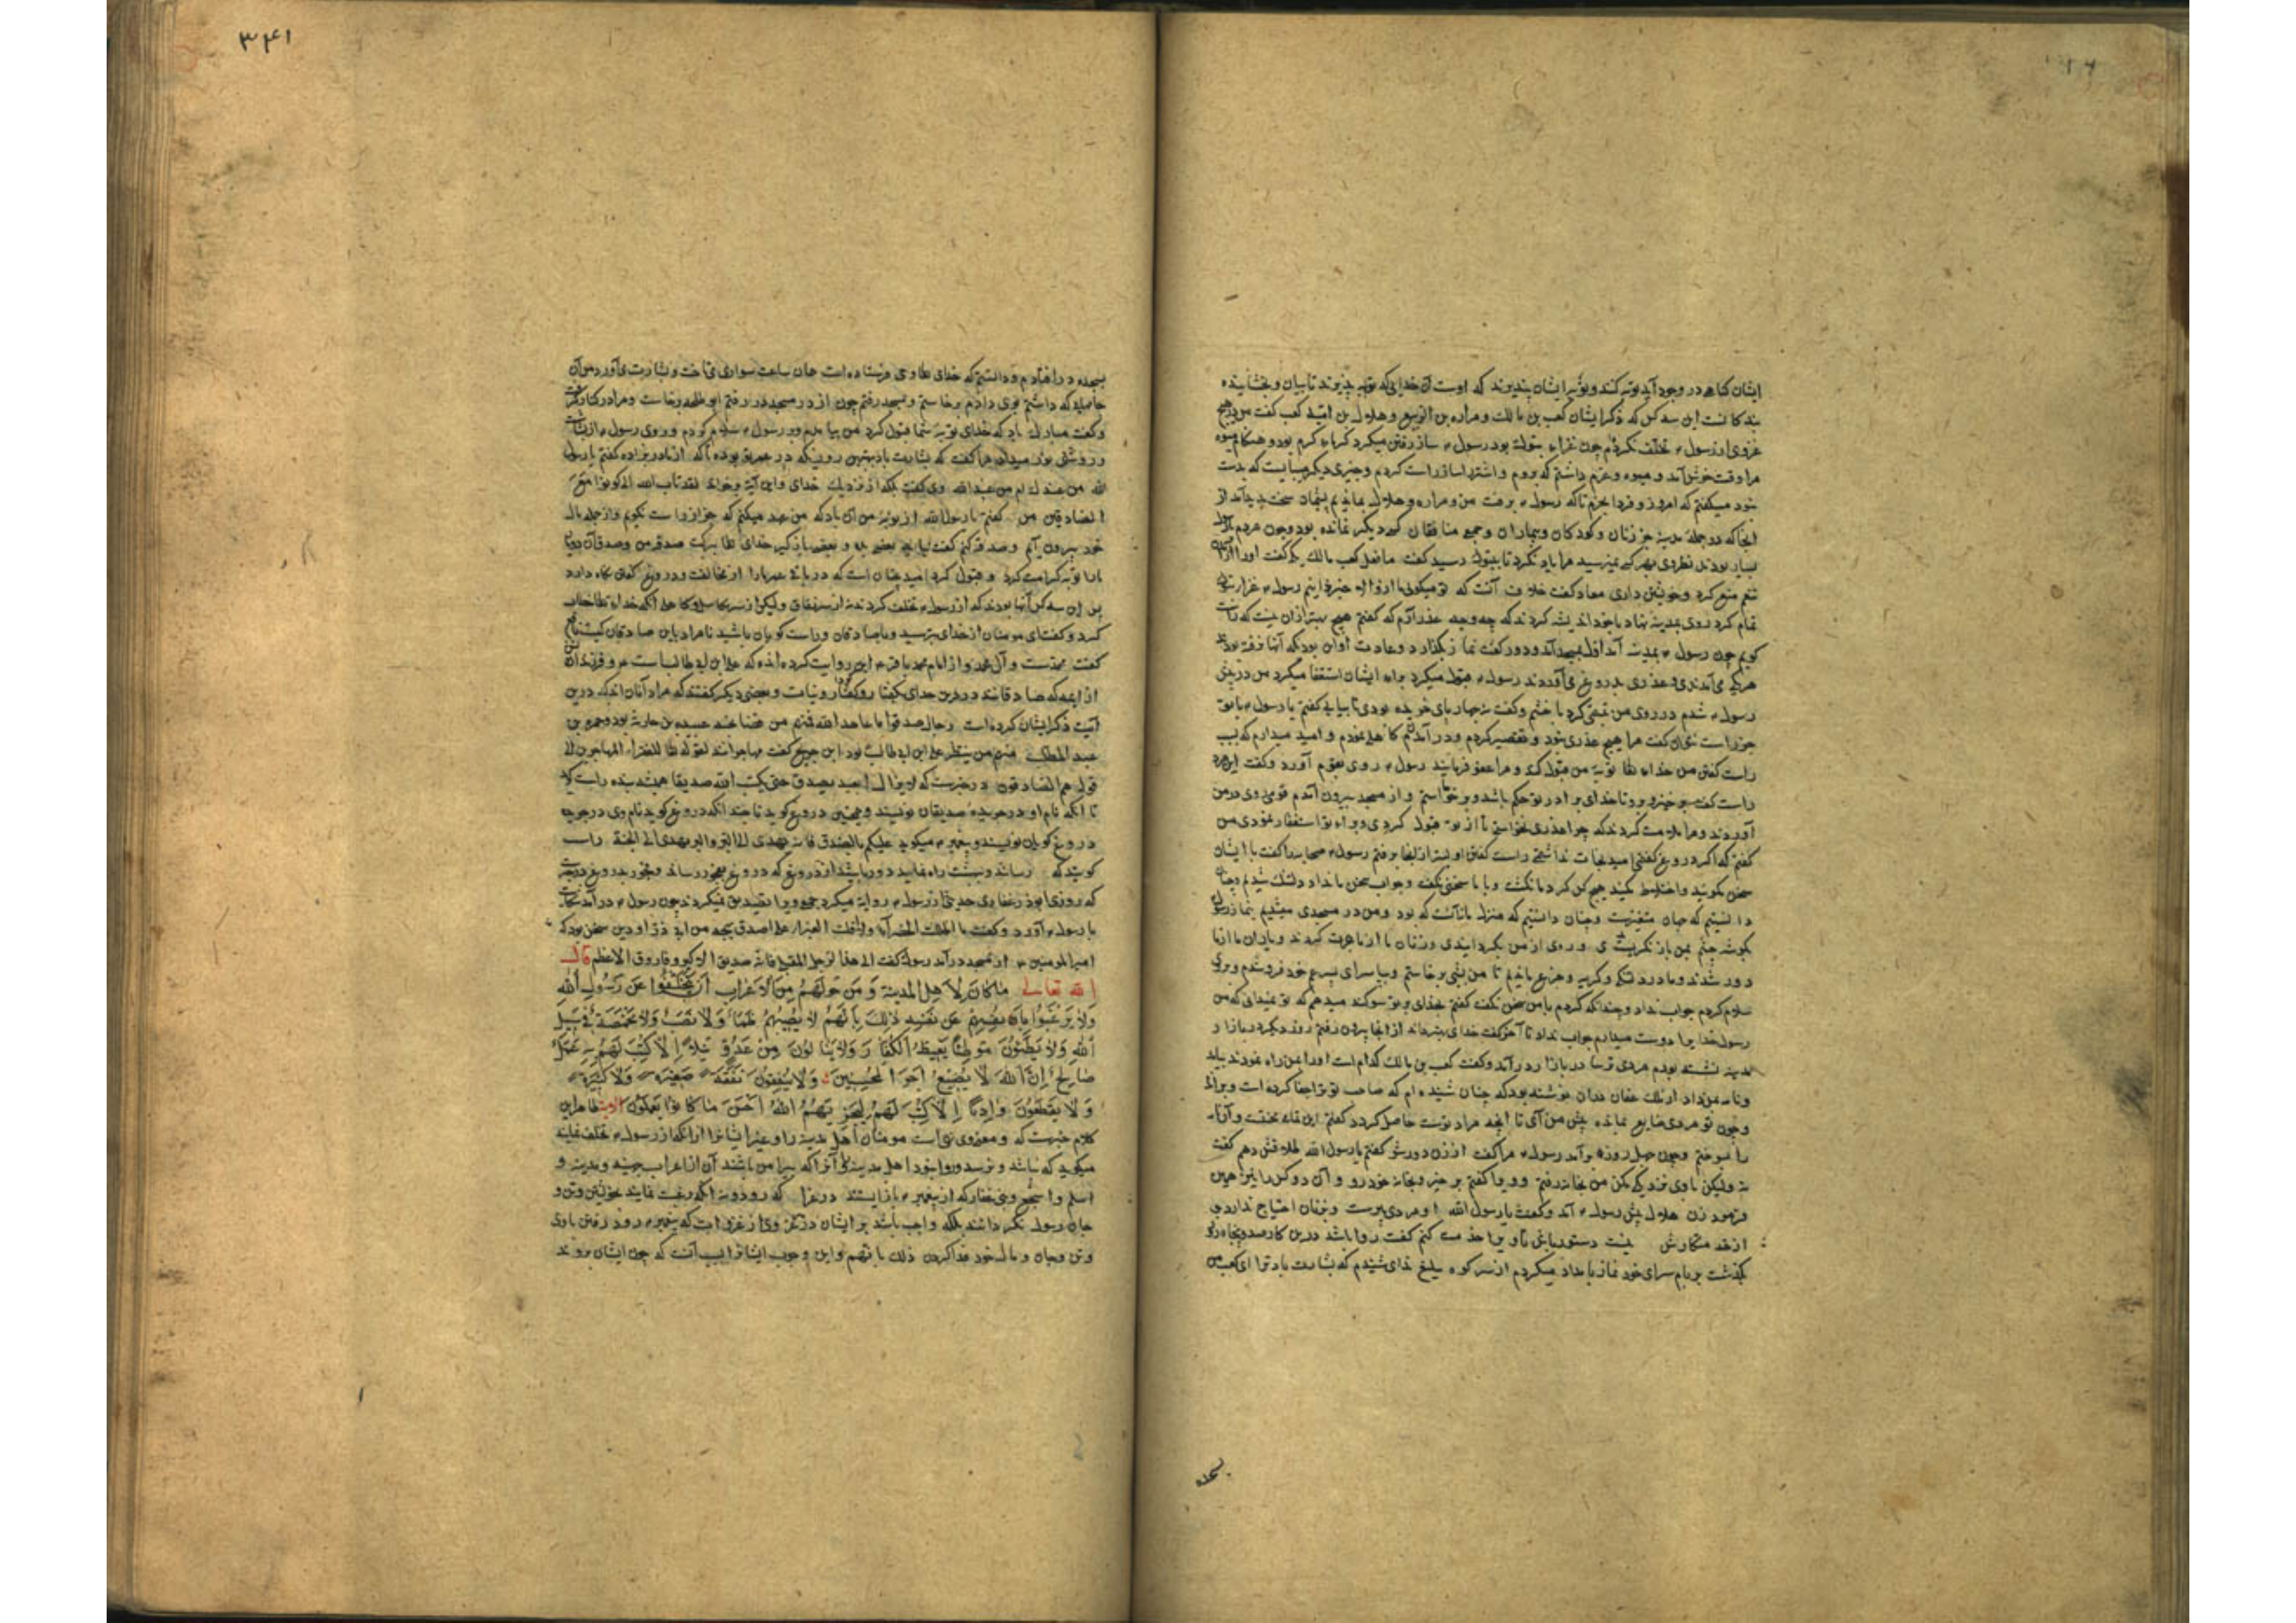 ایشان کناهی در وجود آید توبه کنند و توبه ایشان بپذیرند که اوست آن خدایی که توبه پذیرند تاییان و بخشاینده
بندکانست این سه کس که ذکر ایشان کعب بن مالک و مراره بن الربیع و هلال بن امیه کعب کفت من در هیچ
غزوی از رسول تخلف نکردم چون غزاء تبوک بود رسول ساز رفتن میکرد کرماء کرم بود و هنکام میوه
مرا وقت خوش آمد و میوه و عزم داشتم که بروم و اشتر و ساز راست کردم و چیزی دیکر میبایست که بدست
شود میکفتم که امروز و فردا بخرم تا که رسول برفت من و مراره و هلال بماندیم پشیمان سخت
انجا که در جمله مدینه جز زنان و کودکان و بیماران و جمع منافقان کسی دیکر نمانده بود و چون مردم
بسیار بودند مرا یاد نکرد تا بتبوک رسید کفت ما فعل کعب مالک یکی کفت او را
تنعم منع کرد و خویشتن داری معاد کفت خلاف آنست که تو میکوئی ما ازو الا خیر ندانیم رسول غزا
تمام کرد روی بمدینه نهاد با خود اندیشه کردند که چه وجه عذر آرم که کفتم هیچ بهتر ازان نیست که راست
کویم چون رسول بمدینه آمد اول بمسجد آمد و دو رکعت نماز بکذارد و عادت او این بود که آنها نرفته بودند
هر یکی می آمدند و عذری بدروغ می آوردند رسول قبول میکرد برای ایشان استغفا میکرد من در پیش
رسول شدم در روی من تبسمی کرد با خشم و کفت نه چهارپای خریده بودی تا بیایی کفتم یا رسول با تو
جز راست نتوان کفت مرا هیچ عذری نبود و تقصیر کردم و در آمدنم کاهلی نمودم و امید میدارم که بسبب
راست کفتن من خداء تعا توبه من قبول کند و مرا عفو فرمایند رسول روی بقوم آورد و کفت این مرد
راست کفت برخیز و برو تا خدای بر ادر تو حکم باشد و برخواستم و از مسجد بیرون آمدم قومی روی در من
آوردند و مرا ملامت کردند که چرا عذری نخواستی تا از تو قبول کردی و براء تو استغفار نمودی من
کفتم که اکر دروغ کفتمی امید نجات نداشتمی راست کفتن اولیتر از انجا برفتم رسول صحابه را کفت با ایشان
سخن مکویید و اختلاط مکنید هیچ کس کرد ما نکشت و با ما سخن نکفت و جواب سخن ما نداد دلتنک شدیم و چنان
دانستیم که جهان متغیرست و چنان دانستیم که منزل ما نه آنست که بود و من در مسجدی میشدیم بنماز رسول
بکوشه چشم بمن باز نکریستی و روی از من بکردانیدی و زنان ما از ما هجرت کردند و یاران ما از ما
دور شدند و ما در دلتنکی و کریه و جزع ماندیم تا من شبی برخاستم و بپا سرای پسر عم خود فرو شدم و بر وی
سلام کردم جواب نداد و چندانکه کردم با من سخن نکفت کفتم بخدای بر تو سوکند میدهم که تو نمیدانی که من
رسول خدا را دوست میدارم جواب نداد تا آخر کفت خدای بهتر داند از انجا بیرون رفتم روز دیکر در بازار
مدینه نشسته بودم مردی ترسا در بازار درآمد و کفت کعب بن مالک کدام است او را بمن راه نمودند بیامد
و نامه بمن داد از ملک غسان دران نوشته بود که چنان شنیده ام که صاحب تو ترا جفا کرده است و براند
و چون تو مردی ضایع نمانده پیش من آی تا انچه مراد تست حاصل کردد کفتم این بلا سختست و آن نامه
را بسوختم و چون چهل روزه برآمد رسول مرا کفت از زن دور شو کفتم یا رسول الله طلاقش دهم کفت
نه ولیکن با وی نزدیکی مکن من بخانه رفتم و ورا کفتم برخیز و بخانه خود رو و آن دو کس را نیز همین
فرمود زن هلال پیش رسول آمد و کفت یا رسول الله او مردی پیرست و بزنان احتیاج ندارد
از خدمتکارش نیست دستور باش تا ویرا خدمت کنم کفت روا باشد درین کار صد و پنجاه روز
بکذشت بر بام سرای خود نماز بامداد میکردم از سر کوه سلع ندای شنیدم که بشارت باد ترا ای کعب من
بسجده
۳۴۱
بسجده در افتادم و دانستم که خدای تعا وحی فرستاده است همان ساعت سواری می تاخت و بشارت می آورد من آن
جامها که داشتم بوی دادم برخاستم و بمسجد رفتم چون از در مسجد در رفتم ابو طلحه برخاست و مرا در کنار کرفت
و کفت مبارک باد که خدای توبه شما قبول کرد من بیامدم و بر رسول سلام کردم و روی رسول از بشاشت
و روشنی نور میداد مرا کفت که بشارت باد بهترین روزیکه در عمر تو بوده تا که از مادر بزاده کفتم یا رسول
الله من عندک ام من عند الله وی کفت بلکه از نزدیک خدای و این آیه بر خواند لقد تاب الله الی کونوا مع
الصادقین من کفتم یا رسول الله از توبه من آن باد که من عهد میکنم که جز از راست نکویم و از جمله مال
خود بیرون آیم و صدقه کنم کفت نباید بعضی بده و بعضی باز کیر خدای تعا ببرکت صدق من و صدق آن دو
ما را توبه کرامت کرد و قبول کرد امید چنان است که در باقی عمر ما را از مخالفت و دروغ کفتن نکاه دارد
پس این سه کس آنها بودند که از رسول تخلف کردند نه از سر نفاق ولیکن از سر کاسلی و کاهلی آنکه خداء تعا خطاب
کرد و کفت ای مومنان از خدای بترسید و با صادقان و راست کویان باشید تا مراد باین صادقان کیست نافع
کفت محمدست و آل محمد و از امام محمد باقر این روایت کرده اند که علی ابن ابی طالب است و فرزندان
از ایمه که صادقانند در دین خدای بکفتار و کردار و نیات و بعضی دیکر کفتند که مراد آنان اند که درین
آیت ذکر ایشان کرده است رجال صدقوا ما عاهدوا الله فمنهم من قضا نحبه عبیده بن حارثه بود و حمزه بن
عبد المطلب منهم من ینتظر علی ابن ابی طالب بود ابن جریج کفت مهاجرانند لقوله تعا للفقراء المهاجرین الی
قوله هم الصادقون در خبرست که لا یزال العبد یصدق حتی یکتب الله صدیقا همیشه بنده راست کوید
تا انکه نام او در جریده صدیقان نویسند و همچنین دروغ کوید تا چند انکه دروغ کوید نام وی در جریده
دروغ کویان نویسند و پیغمبر میکوید علیکم بالصدق فانه یهدی الی البر والبر یهدی الی الجنة راست
کویید که رساند و بهشت راه نماید دور باشید از دروغ که دروغ بفجور رساند و فجور بدروغ
که روزی ابوذر غفاری حدیثی از رسول روایة میکرد جمعی ویرا تصدیق نمیکردند چون رسول درآمد شکایت
با رسول آورد و کفت ما اظلت الخضراء ولا اقلت الغبراء علی اصدق لهجه من ابی ذر او درین سخن بود که
امیر المومنین از مسجد درآمد رسول کفت الی هذا الرجل المقبل فانه صدیق الاکبر و فاروق الاعظم قال
الله تعالی ما كان لأهل المدينة ومن حولهم من الأعراب أن يتخلفوا عن رسول الله
ولا يرغبوا بأنفسهم عن نفسه ذلك بأنهم لا يصيبهم ظمأ ولا نصب ولا مخمصة في سبيل
الله ولا يطئون موطئا يغيظ الكفار ولا ينالون من عدو نيلا إلا كتب لهم به عمل
صالح إن الله لا يضيع أجر المحسنين ولا ينفقون نفقة صغيرة ولا كبيرة
ولا يقطعون واديا إلا كتب لهم ليجزيهم الله أحسن ما كانوا يعملون الایة ظاهر این
کلام خبرست که و معنوی نهی است مومنان اهل مدینه را و غیر ایشانرا از انکه از رسول تخلف نمایند
میکوید که نباشد و نرسد و روا نبود اهل مدینه را و آنرا که پیرامن باشند آن از اعراب جهینه و مزینه و
اسلم و اشجع و بنی غفار که از پیغمبر باز ایستند در غزا که رود و نه انکه رغبت نمایند بخویشتن و تن و
جان رسول نکه داشتند بلکه واجب باشد بر ایشان در غزوی از غزوات که پیغمبر رود رفتن با وی
و تن و جان و مال خود فدا کردن ذلک بانهم و این وجوب ایشانرا سبب آنست که چون ایشان بروند